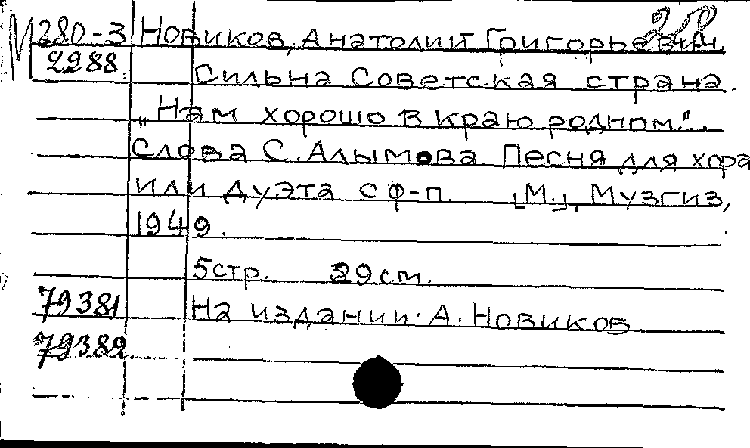 М 280-3 Новиков, Анатолий Григорьевич.
2288 Сильна Советская страна.
„Нам хорошо в краю родном"..
Слова С. Алымова. Песня для хора
или дуэта с ф-п. [М.], Музгиз,
1949.
5 стр. 29 см.
79381 На издании: А. Новиков
79382